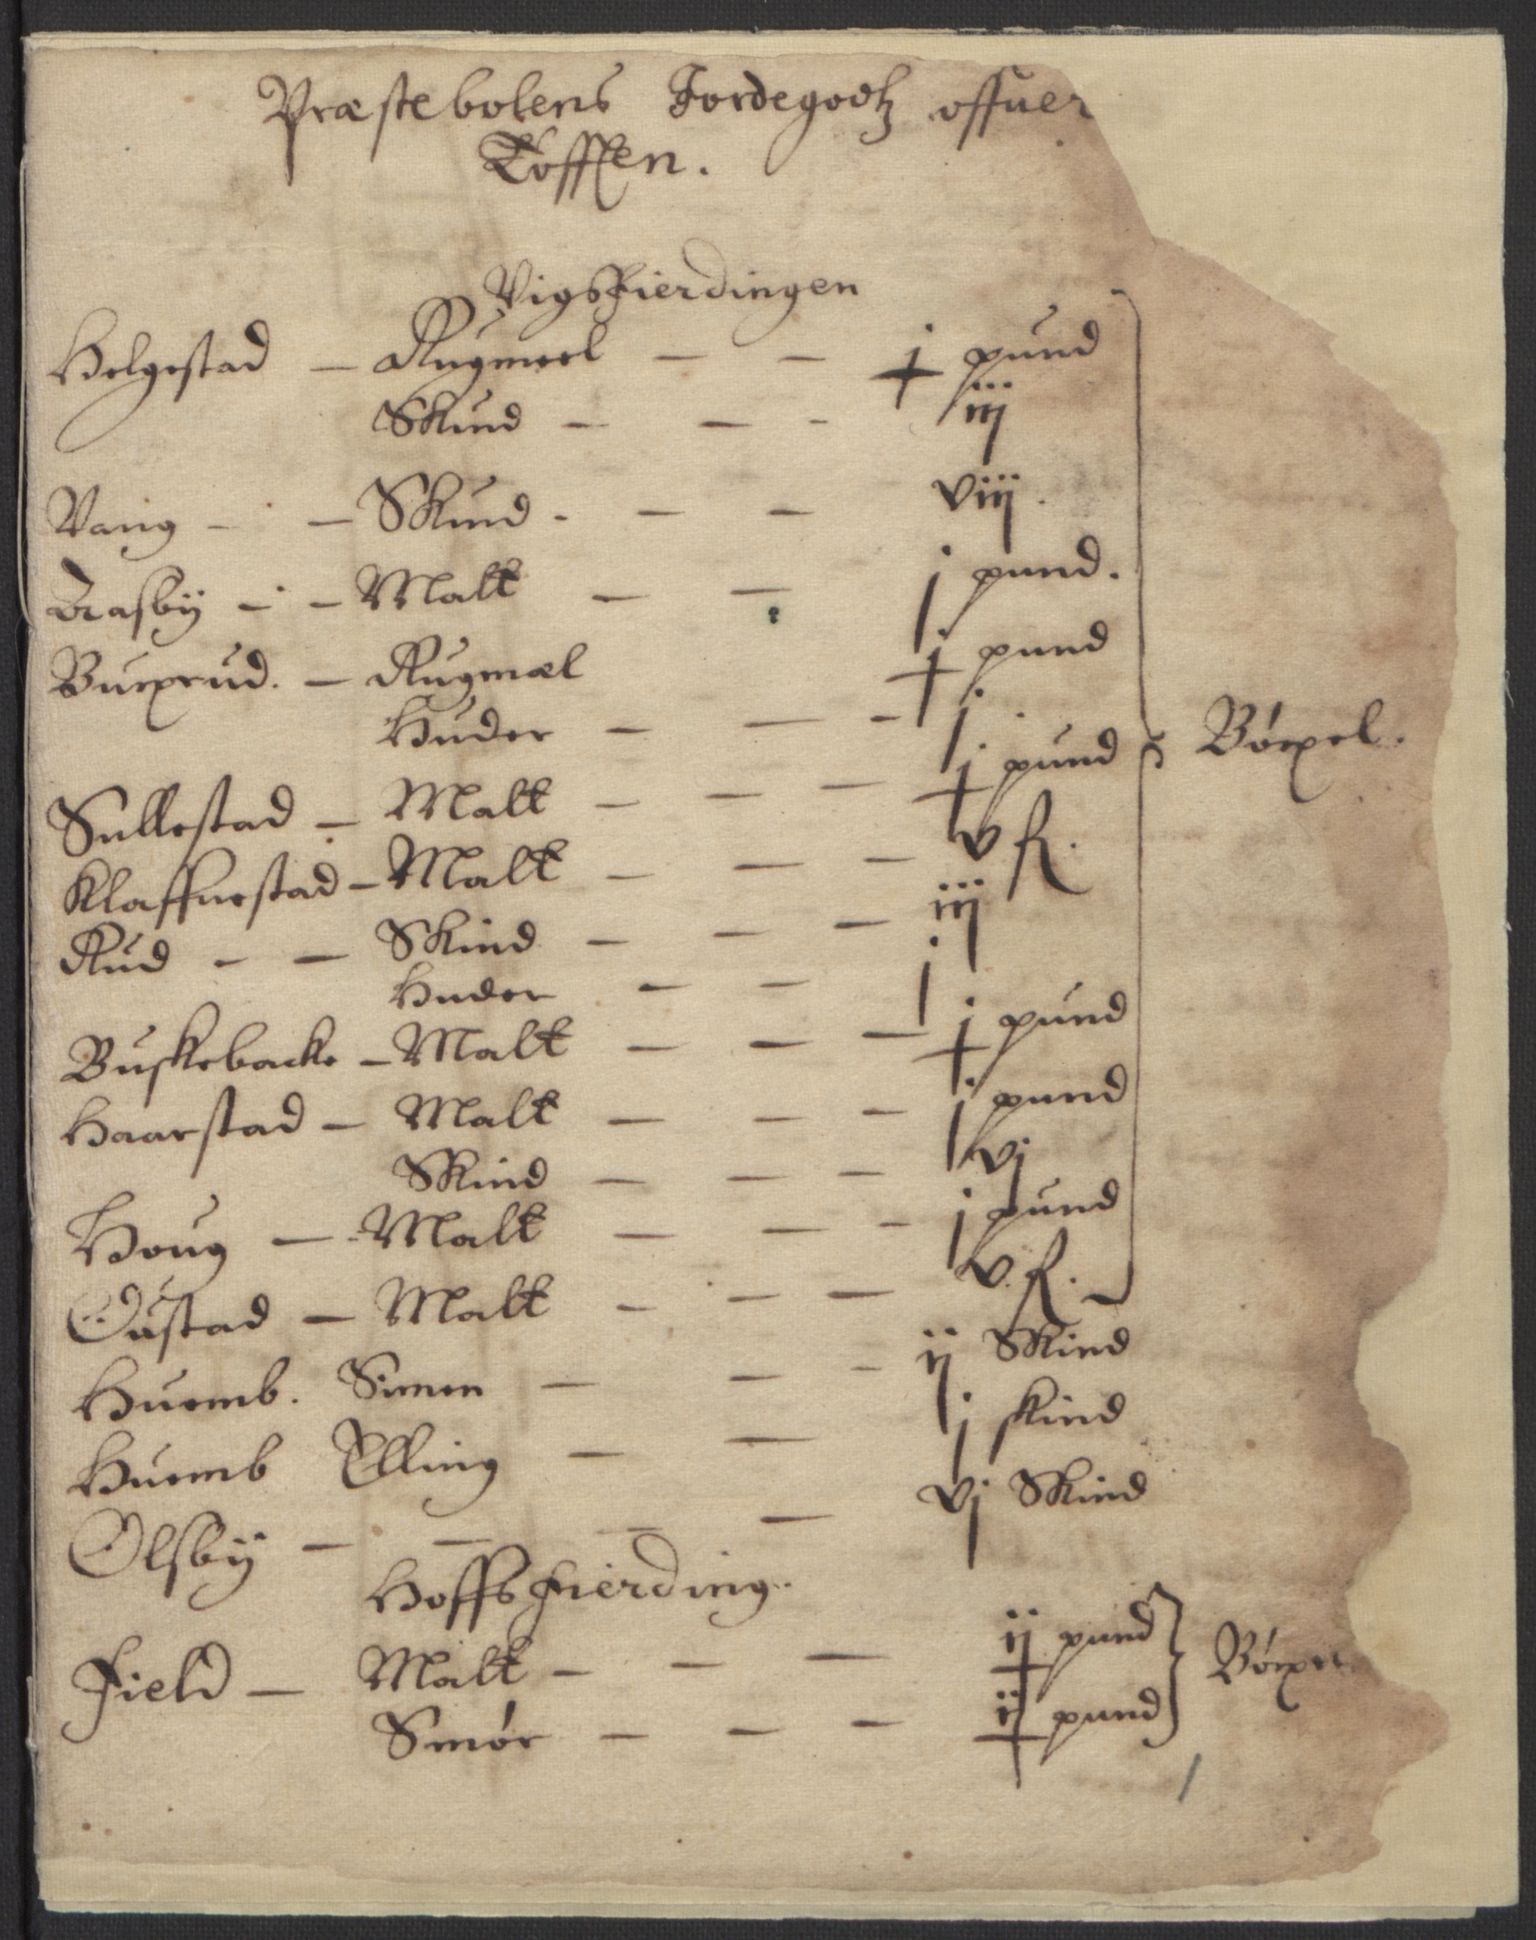 Præstebolens Jordegodtz offuer
Tofften.
Vigsfierdingen
Helgestad — Rugmeel — — j pund
Skind — — - iij
Vang - — Skind - — — viij.
Aasbÿ - — Malt — — j pund.
Buexrud. — Rugmæl j pund
Huder — — - j
Sullestad — Malt — — — j pund
Klaffuestad — Malt — — — v ß.
Rud - — Skind — — — iij
Huder — — j
Buskebacke — Malt — — — j pund
Haarstad — Malt — — — j pund
Skind — — — vj
Houg — Malt — — - j pund
Oustad — Malt — — — v. ß.
Bøxel.
Huemb. Simen — — - ij Skind
Huemb Elling — — j skind
Olsbÿ — — — — vj Skind
Hoffs fierding.
Field — Malt — — — ij pund
Smør — — — ij pund
Bøxel